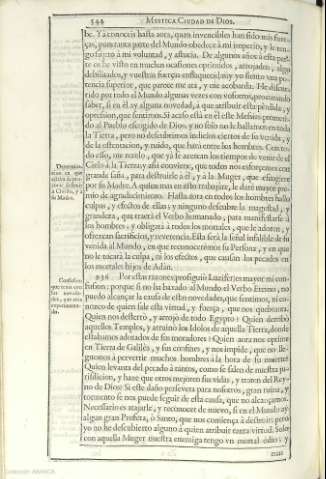 544 MYSTICA CIUDAD DE DIOS.
be. Ya conoceis hasta aora, quan invencibles han sido mis fuer-
ças, pues tanta parte del Mundo obedece à mi imperio, y le ten-
go sujeto à mi voluntad, y astucia. De algunos años à esta par-
te os he visto en muchas ocasiones oprimidos, arrojados, algo
debilitados, y vuestras fuerças enflaquecidas; y yo siento una po-
tencia superior, que parece me ata, y me acobarda. He discur-
rido por todo el Mundo algunas vezes con vosotros, procurando
saber, si en él ay alguna novedad, à que atribuir esta pérdida, y
opression, que sentimos. Si acaso està en él este Messias prometi-
do al Pueblo escogido de Dios, y no solo no le hallamos en toda
la Tierra, pero no descubrimos indicios ciertos de su venida, y
de la ostentacion, y ruido, que harà entre los hombres. Con to-
do esso, me rezelo, que yà se acercan los tiempos de venir de el
Cielo à la Tierra; y assi conviene, que todos nos esforcemos con
grande saña, para destruirle à él, y à la Muger, que escogiere
por su Madre. A quien mas en esto trabajare, le daré mayor pre-
mio de agradecimiento. Hasta aora en todos los hombres hallo
culpas, y efectos de ellas; y ninguno descubre la magestad, y
grandeza, que traerà el Verbo humanado, para manifestarse à
los hombres, y obligarà à todos los mortales, que le adoren, y
ofrezcan sacrificios, y reverencia. Esta serà la señal infalible de su
venida al Mundo, en que reconoceremos su Persona, y en que
no le tocarà la culpa, ni los efectos, que causan los pecados en
los mortales hijos de Adàn.
936 Por estas razones (prosiguiò Luzifer) es mayor mi con-
fusion: porque si no ha baxado al Mundo el Verbo Eterno, no
puedo alcançar la causa de estas novedades, que sentimos, ni co-
nozco de quien sale esta virtud, y fuerça, que nos quebranta.
Quien nos desterrò, y arrojò de todo Egypto? Quien derribò
aquellos Templos, y arruinò los Idolos de aquella Tierra, donde
estabamos adorados de sus moradores? Quien aora nos oprime
en Tierra de Galilèa, y sus confines, y nos impide, que no lle-
guemos à pervertir muchos hombres à la hora de su muerte?
Quien levanta del pecado à tantos, como se salen de nuestra ju-
risdiccion, y haze que otros mejoren sus vidas, y traten del Rey-
no de Dios? Si este daño persevera para nosotros, gran ruina, y
tormento se nos puede seguir de esta causa, que no alcançamos.
Necessario es atajarle, y reconocer de nuevo, si en el Mundo ay
algun gran Profeta, ò Santo, que nos comiença à destruir; pero
yo no he descubierto alguno à quien atribuir tanta virtud. Solo
con aquella Muger nuestra enemiga tengo un mortal odio; y
mas